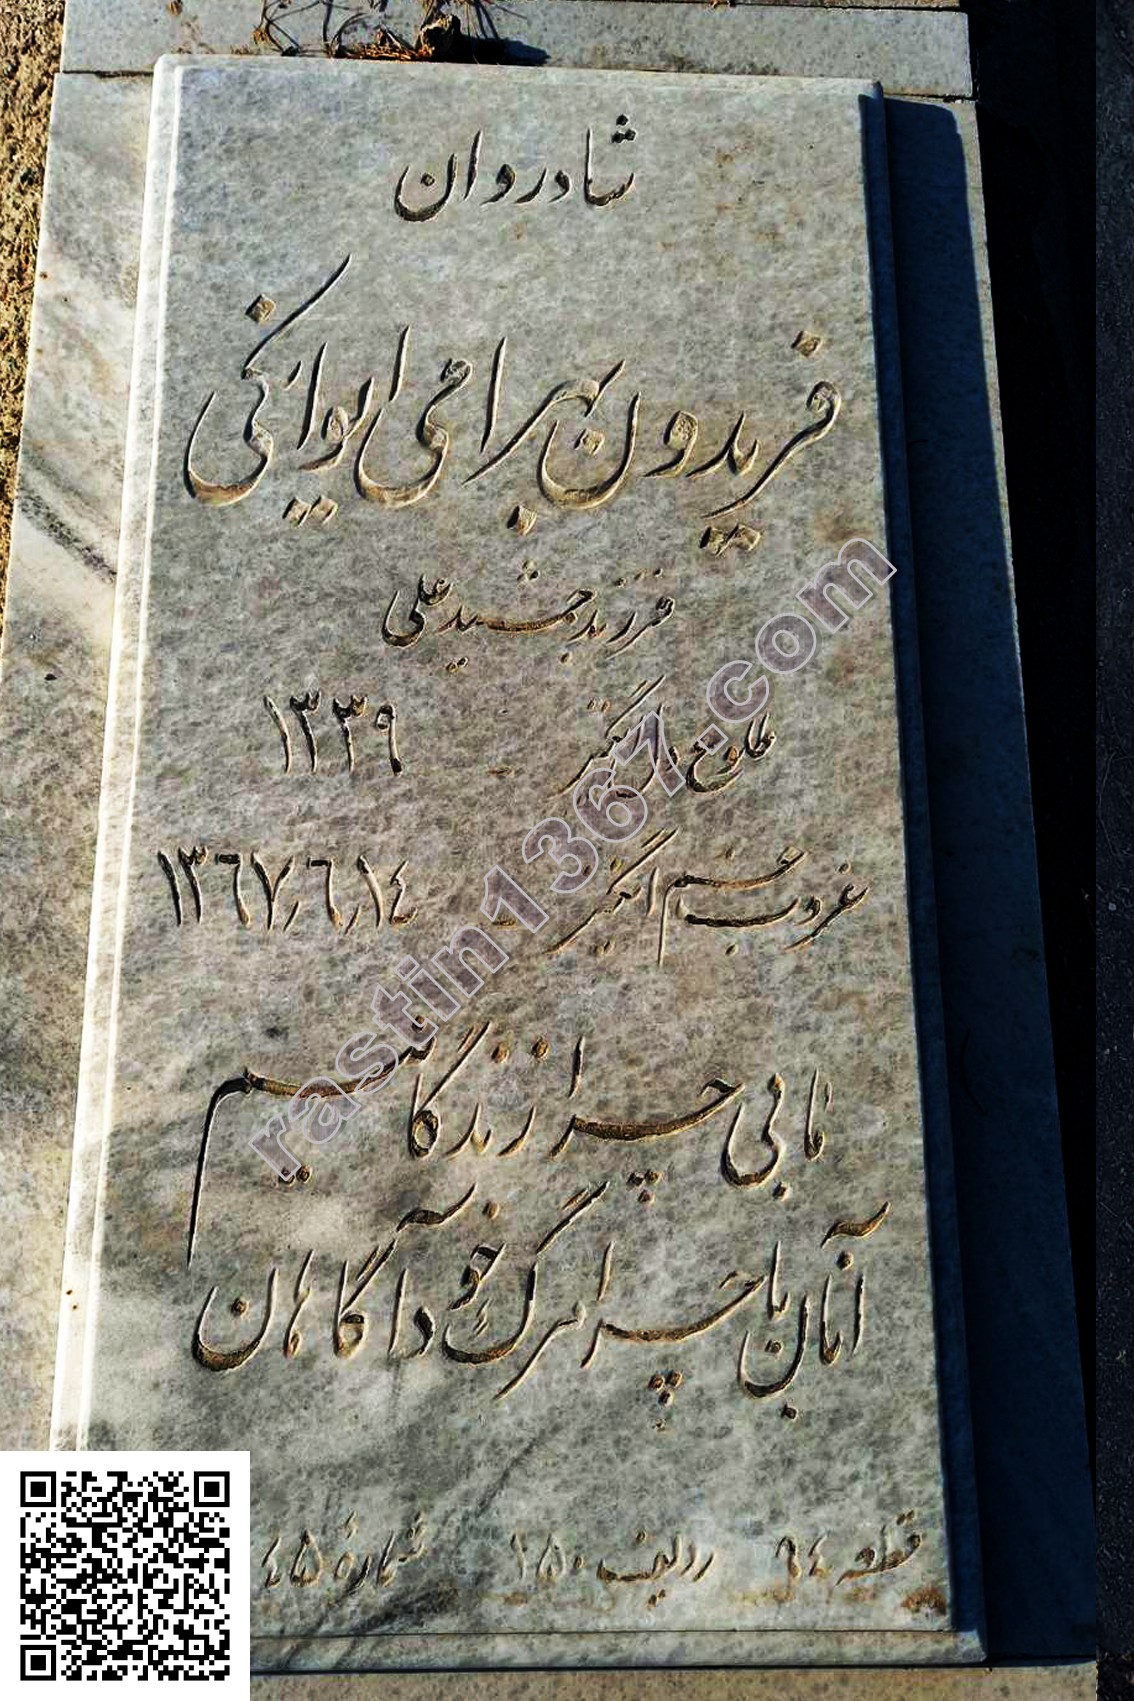 شادروان
فریدون بهرامی ایوانکی
فرزند جمشیدعلی
طلوع دل انگیز ۱۳۳۹
غروب غم انگیز ۱۳٦۷٫٦٫۱٤
ما بی چرا زندگانیم
آنان با چرا مرگ خود آگاهان
قطعه ۹٤ ردیف ۱۵۰ شمارهٔ ٤۵
rastin1367.com